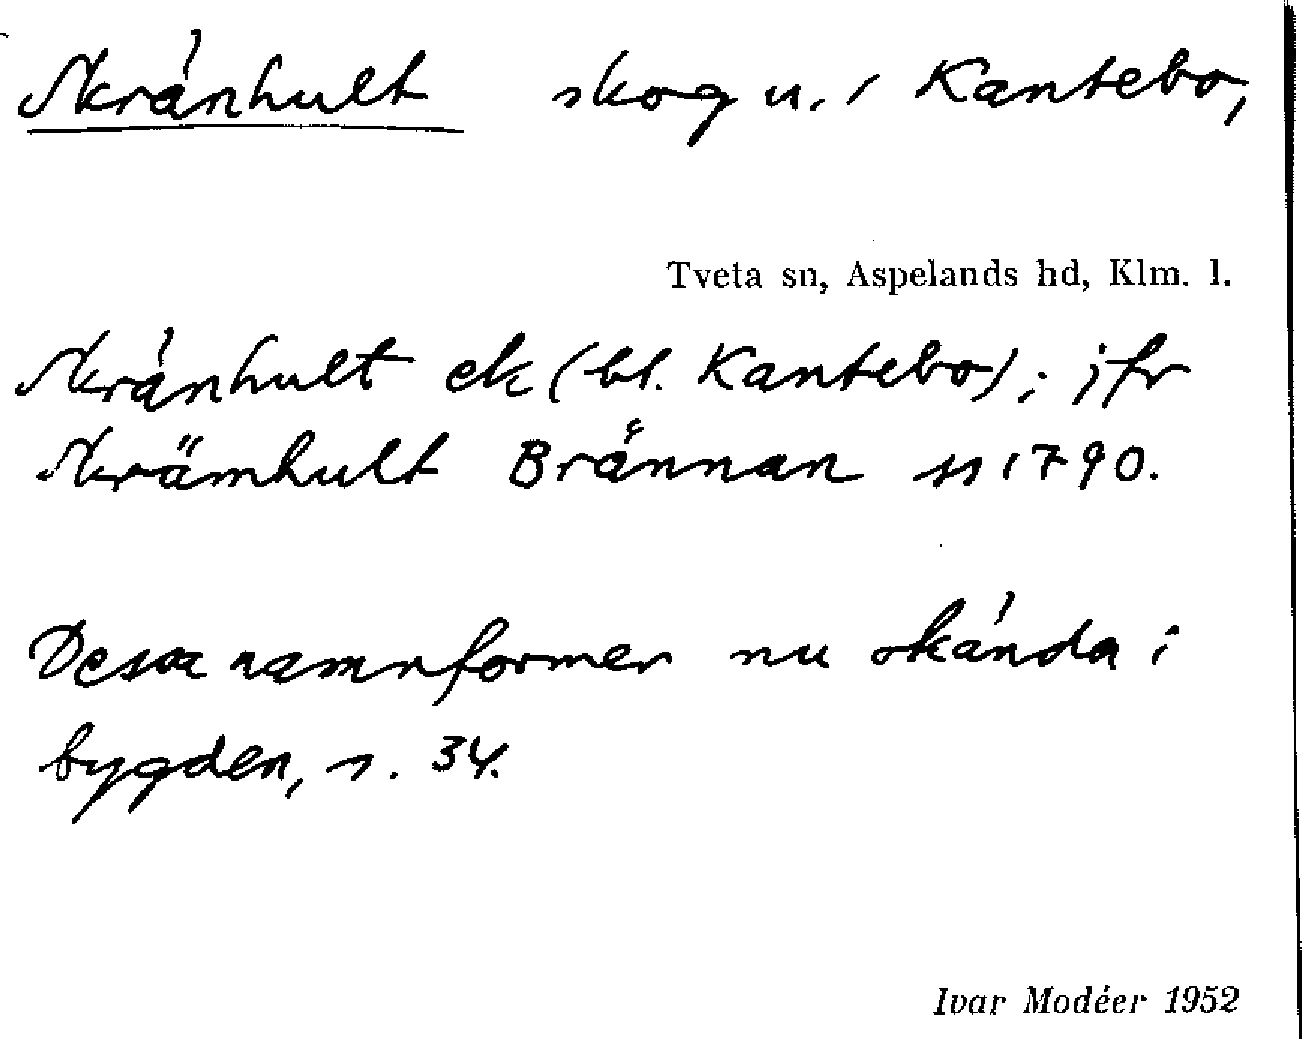 Skränhult skog u. i Kantebo,
Tveta sn, Aspelands hd, Klm. l.
Skränhult ek (bl. Kantebo); jfr
Skrämhult Brånnan ss 1790.
Dessa namnformer nu okända i
bygden, s. 34.
Ivar Modéer 1952